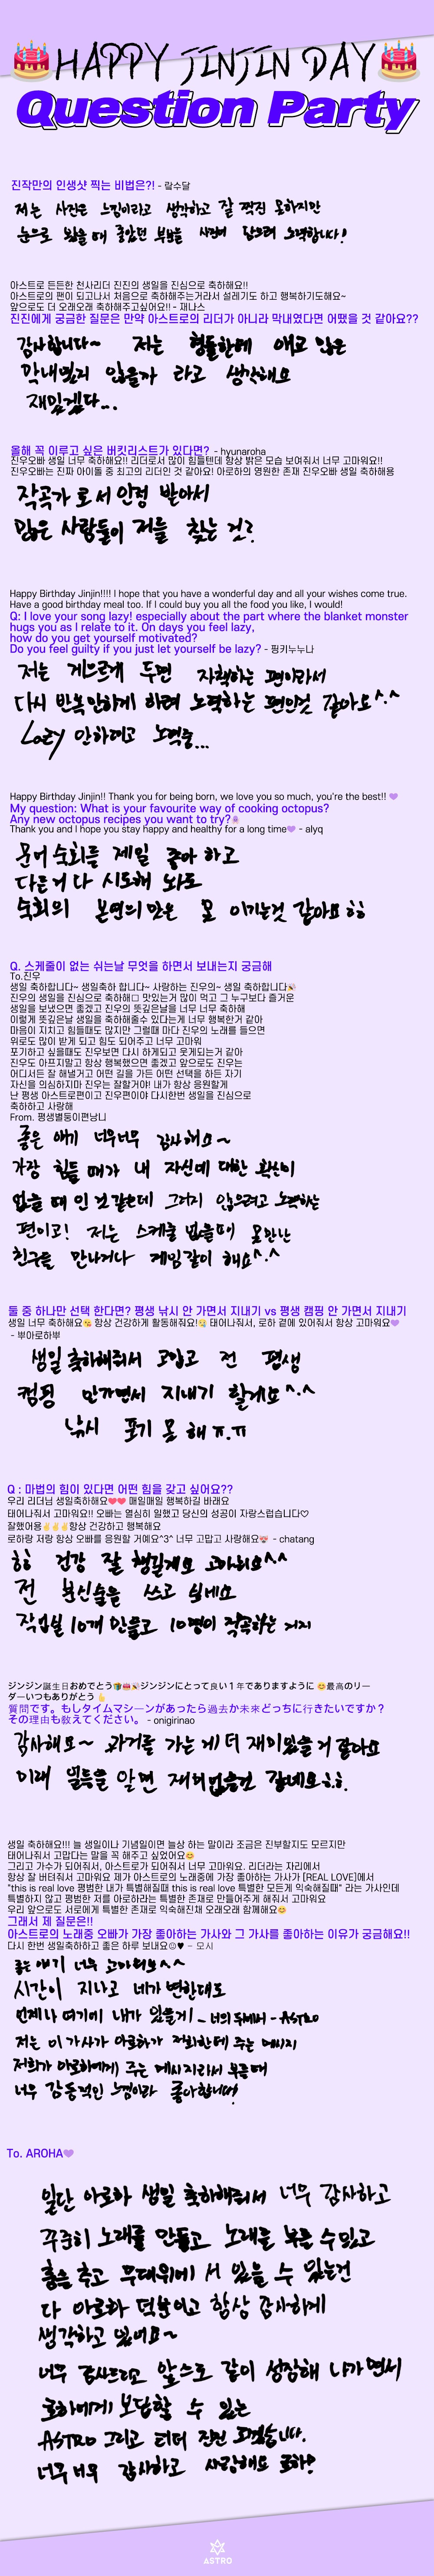 HAPPY JINJIN DAY
Question Party
진작만의 인생샷 찍는 비법은?! - 랄수달
저는 사진은 느낌이라고 생각하고 잘 찍진 못하지만
눈으로 봤을 때 좋았던 부분들 사진에 담으려 노력합니다!
아스트로 든든한 천사리더 진진의 생일을 진심으로 축하해요!!
아스트로의 팬이 되고나서 처음으로 축하해주는거라서 설레기도 하고 행복하기도해요~
앞으로도 더 오래오래 축하해주고싶어요!! - 재냐스
진진에게 궁금한 질문은 만약 아스트로의 리더가 아니라 막내였다면 어땠을 것 같아요??
감사합니다~ 저는 형들한테 애교 많은
막내멤버 였을까 라고 생각해요
재밌겠다...
올해 꼭 이루고 싶은 버킷리스트가 있다면? - hyunaroha
진우오빠 생일 너무 축하해요!! 리더로서 많이 힘들텐데 항상 밝은 모습 보여줘서 너무 고마워요!!
진우오빠는 진짜 아이돌 중 최고의 리더인 것 같아요! 아로하의 영원한 존재 진우오빠 생일 축하해용
작곡가로서 인정 받아서
많은 사람들이 저를 찾는 것?
Happy Birthday Jinjin!!!! I hope that you have a wonderful day and all your wishes come true.
Have a good birthday meal too. If I could buy you all the food you like, I would!
Q: I love your song lazy! especially about the part where the blanket monster
hugs you as I relate to it. On days you feel lazy,
how do you get yourself motivated?
Do you feel guilty if you just let yourself be lazy? - 핑키누누나
저는 게으르게 두면 자책하는 편이라서
다시 반복안하게 하려 노력하는 편인것 같아요^.^
Lazy 안하려고 노력중...
Happy Birthday Jinjin!! Thank you for being born, we love you so much, you're the best!! 💜
My question: What is your favourite way of cooking octopus?
Any new octopus recipes you want to try?🐙
Thank you and I hope you stay happy and healthy for a long time💜 - alyq
문어 숙회를 제일 좋아 하고
다른거 다 시도해 봐도
숙회의 본연의 맛은 못 이기는것 같아요 ㅎㅎ
Q. 스케줄이 없는 쉬는날 무엇을 하면서 보내는지 궁금해
To.진우
생일 축하합니다~ 생일축하 합니다~ 사랑하는 진우의~ 생일 축하합니다🎉
진우의 생일을 진심으로 축하해□ 맛있는거 많이 먹고 그 누구보다 즐거운
생일을 보냈으면 좋겠고 진우의 뜻깊은날을 너무 너무 축하해
이렇게 뜻깊은날 생일을 축하해줄수 있다는게 너무 행복한거 같아
마음이 지치고 힘들때도 많지만 그럴때 마다 진우의 노래를 들으면
위로도 많이 받게 되고 힘도 되어주고 너무 고마워
포기하고 싶을때도 진우보면 다시 하게되고 웃게되는거 같아
진우도 아프지말고 항상 행복했으면 좋겠고 앞으로도 진우는
어디서든 잘 해낼거고 어떤 길을 가든 어떤 선택을 하든 자기
자신을 의심하지마 진우는 잘할거야! 내가 항상 응원할게
난 평생 아스트로편이고 진우편이야 다시한번 생일을 진심으로
축하하고 사랑해
From. 평생별둥이편냥니
좋은 얘기 너무너무 감사해요~
가장 힘들 때가 내 자신에 대한 확신이
없을 때 인 것 같은데 그러지 않으려고 노력하는
편이고! 저는 스케줄 없을때 못만난
친구들 만나거나 게임같이 해요^.^
둘 중 하나만 선택 한다면? 평생 낚시 안 가면서 지내기 vs 평생 캠핑 안 가면서 지내기
생일 너무 축하해요😘 항상 건강하게 활동해줘요!😢 태어나줘서, 로하 곁에 있어줘서 항상 고마워요💜
- 뿌아로하뿌
생일 축하해줘서 고맙고 전 평생
캠핑 안가면서 지내기 할게요^.^
낚시 포기 못 해 ㅠ.ㅠ
Q : 마법의 힘이 있다면 어떤 힘을 갖고 싶어요??
우리 리더님 생일축하해요❤❤ 매일매일 행복하길 바래요
태어나줘서 고마워요!! 오빠는 열심히 일했고 당신의 성공이 자랑스럽습니다♡
잘했어용✌✌✌항상 건강하고 행복해요
로하랑 저랑 항상 오빠를 응원할 거예요^3^ 너무 고맙고 사랑해요 - chatang
하 건강 잘 챙길게요 고마워요^^
전 분신술을 쓰고 싶네요
작업실 10개 만들고 10명이 작곡하는 거지
ジンジン誕生日おめでとう🎁🎂🎉ジンジンにとって良い１年でありますように😊最高のリー
ダーいつもありがとう
質問です。もしタイムマシーンがあったら過去か未来どっちに行きたいですか？
その理由も教えてください。 - onigirinao
감사해요~ 과거를 가는게 더 재미있을 거 같아요
미래 일들을 알면 재미없을것 같네요ㅎㅎ.
생일 축하해요!!! 늘 생일이나 기념일이면 늘상 하는 말이라 조금은 진부할지도 모르지만
태어나줘서 고맙다는 말을 꼭 해주고 싶었어요😊
그리고 가수가 되어줘서, 아스트로가 되어줘서 너무 고마워요. 리더라는 자리에서
항상 잘 버텨줘서 고마워요 제가 아스트로의 노래중에 가장 좋아하는 가사가 [REAL LOVE]에서
"this is real love 평범한 내가 특별해질때 this is real love 특별한 모든게 익숙해질때" 라는 가사인데
특별하지 않고 평범한 저를 아로하라는 특별한 존재로 만들어주게 해줘서 고마워요
우리 앞으로도 서로에게 특별한 존재로 익숙해진채 오래오래 함께해요😊
그래서 제 질문은!!
아스트로의 노래중 오빠가 가장 좋아하는 가사와 그 가사를 좋아하는 이유가 궁금해요!!
다시 한번 생일축하하고 좋은 하루 보내요☺♥ - 모시
좋은 얘기 너무 고마워요^^
시간이 지나고 네가 변한대도
언제나 여기에 내가 있을게 - 너의 뒤에서 - ASTRO
저는 이 가사가 아로하가 저희한테 주는 메시지
저희가 아로하에게 주는 메시지라서 부를때
너무 감동적인 느낌이라 좋아합니다!
To. AROHA💜
일단 아로하 생일 축하해줘서 너무 감사하고
꾸준히 노래를 만들고 노래를 부를 수 있고
춤을 추고 무대위에 서 있을 수 있는건
다 아로하 덕분이고 항상 감사하게
생각하고 있어요~
너무 감사드리고 앞으로 같이 성장해 나가면서
로하에게 보답할 수 있는
ASTRO 그리고 리더 진진 되겠습니다.
너무너무 감사하고 사랑해요 로하!
ASTRO